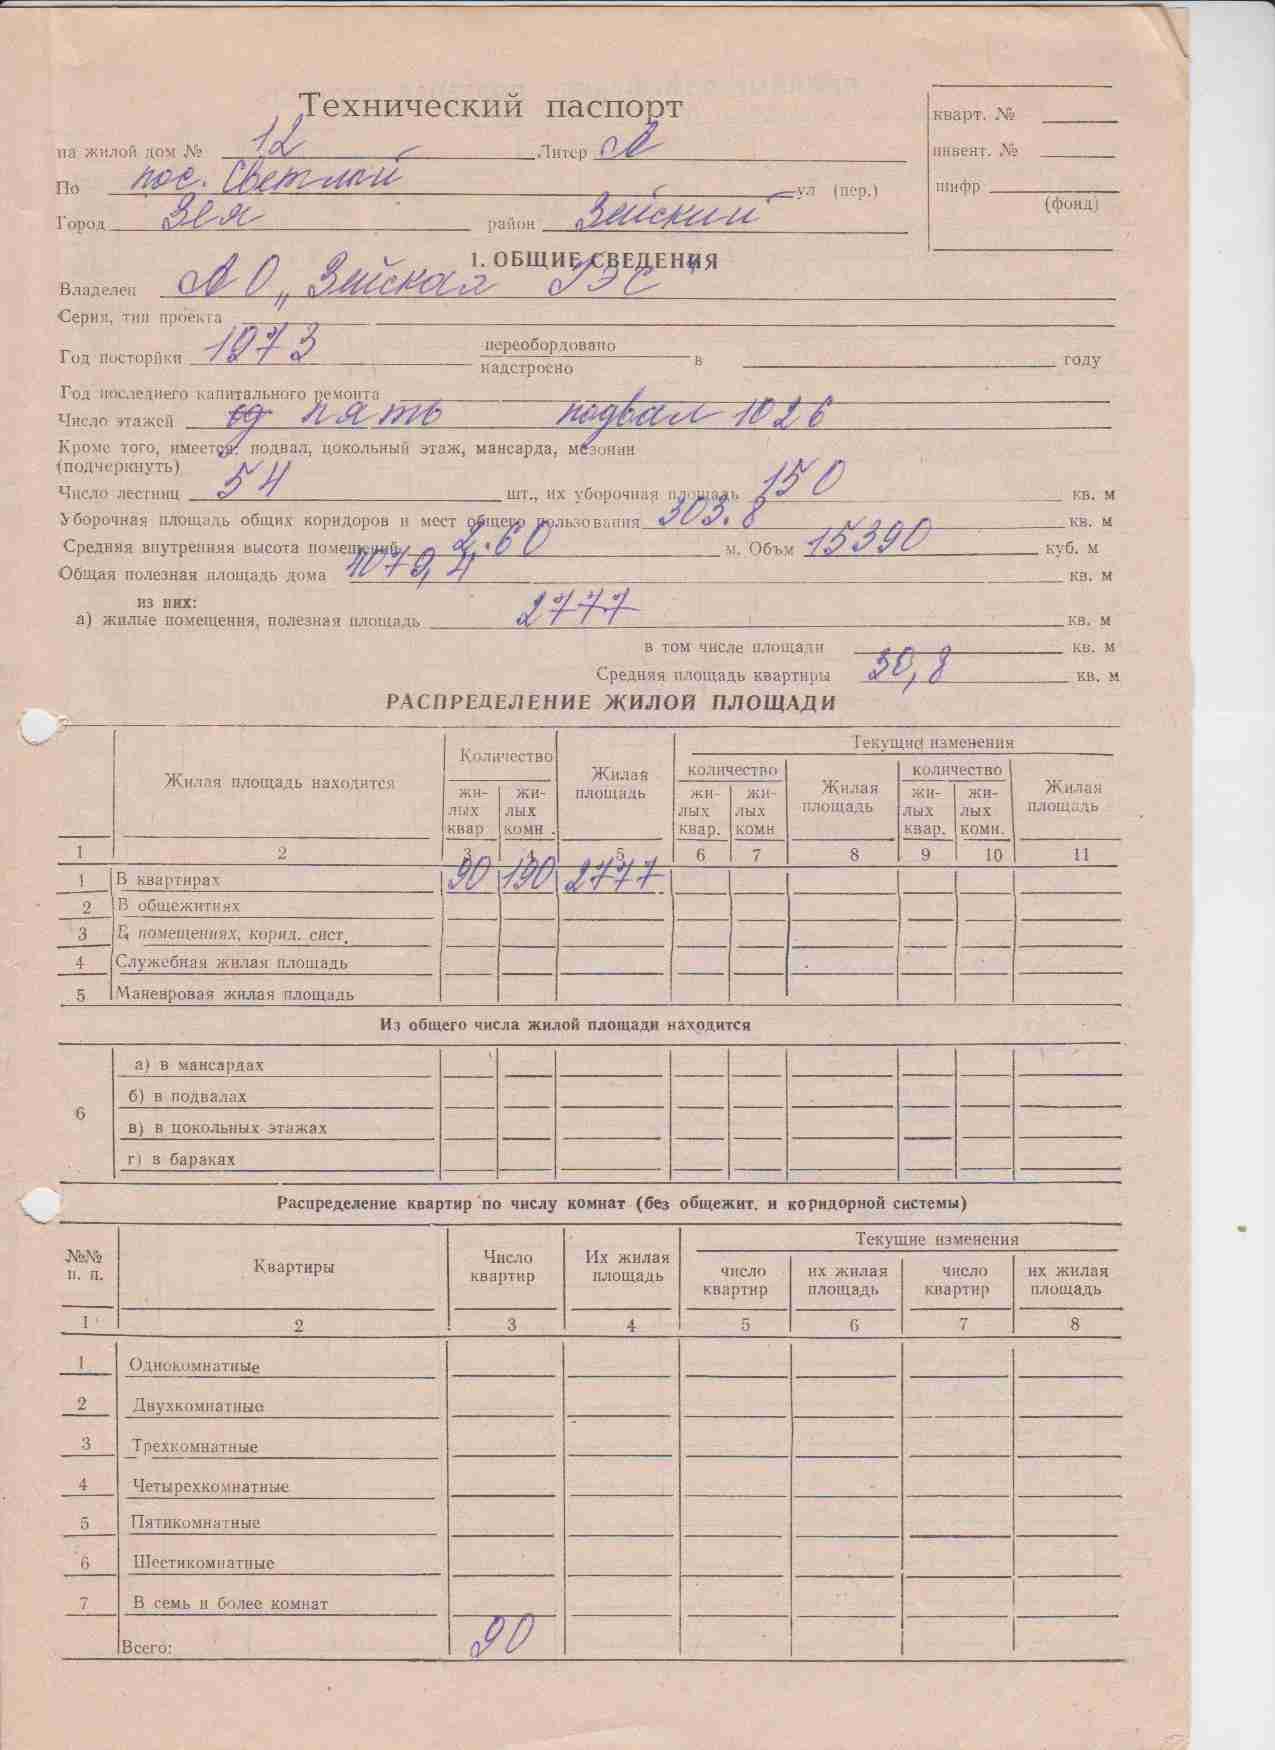 Технический паспорт
на жилой дом № 12 Литер А
кварт. №
инвент. №
шифр
(фонд)
По пос. Светлый ул (пер.)
Город Зея район Зейский
1. ОБЩИЕ СВЕДЕНИЯ
Владелец АО „Зейская ГЭС"
Серия, тип проекта
Год посторйки 1973 переобордовано
надстроено в году
Год последнего капитального ремонта
Число этажей пять подвал 1026
Кроме того, имеется: подвал, цокольный этаж, мансарда, мезонин
(подчеркнуть)
Число лестниц 54 шт., их уборочная площадь 150 кв. м
Уборочная площадь общих коридоров и мест общего пользования 303.8 кв. м
Средняя внутренняя высота помещений 2.60 м. Объм 15390 куб. м
Общая полезная площадь дома 4079,4 кв. м
из них:
а) жилые помещения, полезная площадь 2777 кв. м
в том числе площади кв. м
Средняя площадь квартиры 30,8 кв. м
РАСПРЕДЕЛЕНИЕ ЖИЛОЙ ПЛОЩАДИ
Жилая площадь находится
Количество
жи-
лых
квар
жи-
лых
комн.
Жилая
площадь
Текущие изменения
количество
жи-
лых
квар.
жи-
лых
комн
Жилая
площадь
количество
жи-
лых
квар.
жи-
лых
комн.
Жилая
площадь
1 2 3 4 5 6 7 8 9 10 11
1 В квартирах 90 190 2777
2 В общежитиях
3 В помещениях, корид. сист.
4 Служебная жилая площадь
5 Маневровая жилая площадь
Из общего числа жилой площади находится
6
а) в мансардах
б) в подвалах
в) в цокольных этажах
г) в бараках
Распределение квартир по числу комнат (без общежит. и коридорной системы)
№№
п. п.
Квартиры
Число
квартир
Их жилая
площадь
Текущие изменения
число
квартир
их жилая
площадь
число
квартир
их жилая
площадь
1 2 3 4 5 6 7 8
1 Однокомнатные
2 Двухкомнатные
3 Трехкомнатные
4 Четырехкомнатные
5 Пятикомнатные
6 Шестикомнатные
7 В семь и более комнат
Всего: 90